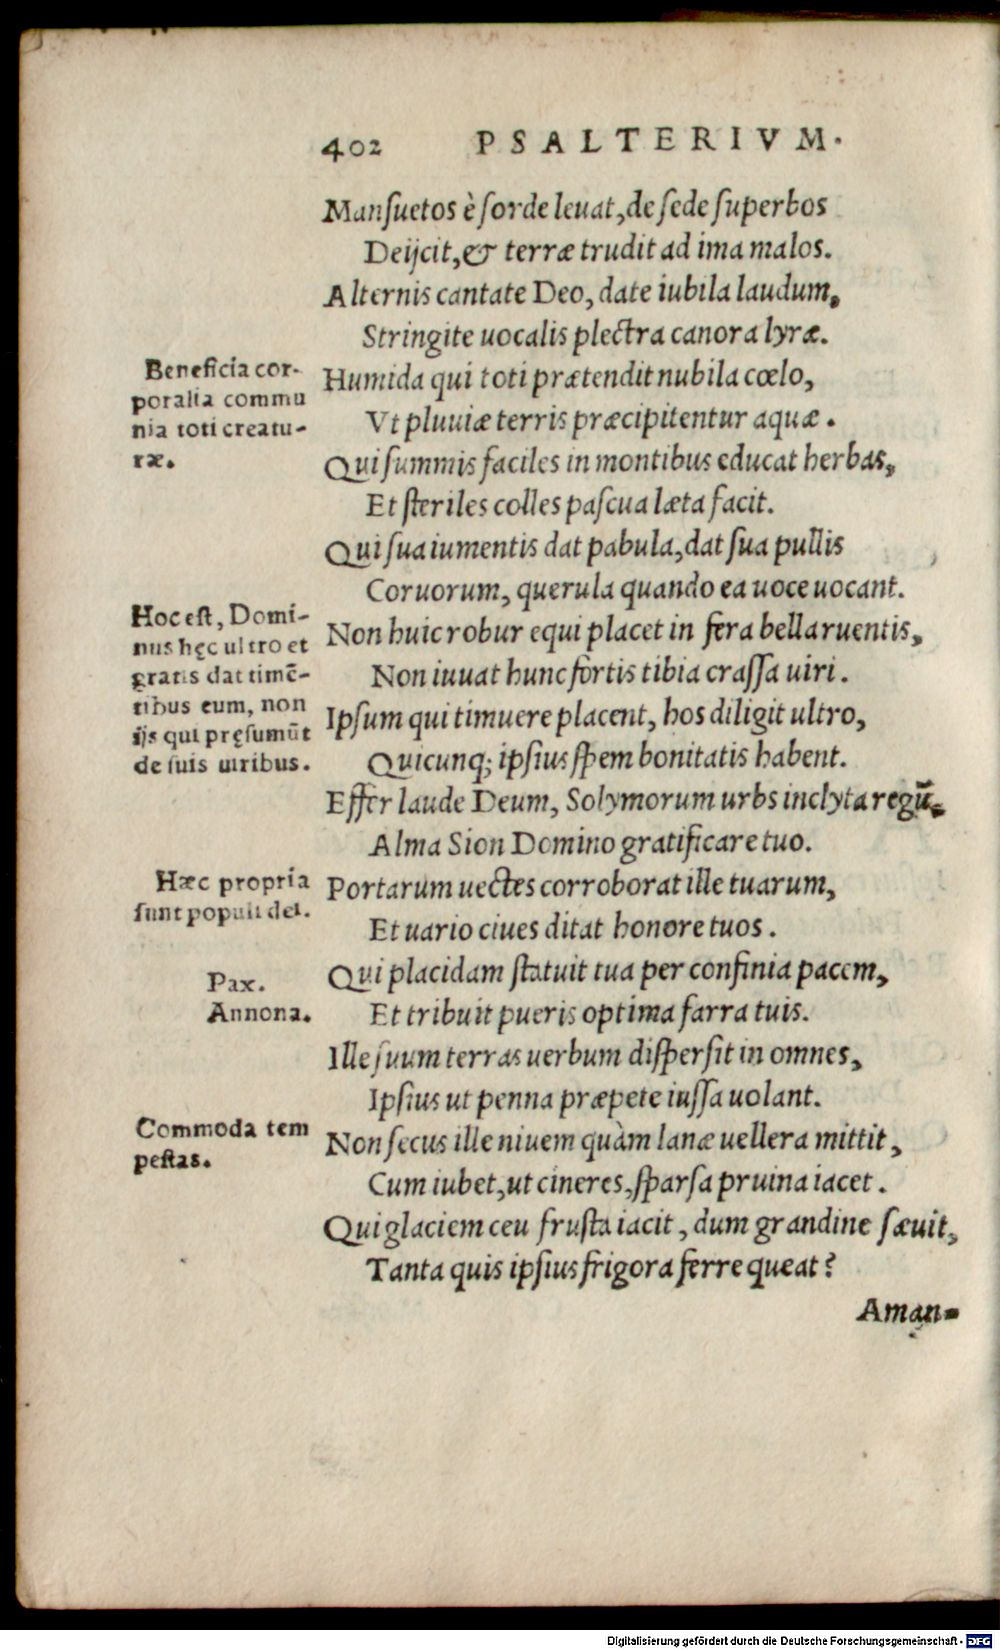 402 PSALTERIVM.
Manſuetos è ſorde leuat, de ſede ſuperbos
Deijcit, & terræ trudit ad ima malos.
Alternis cantate Deo, date iubila laudum,
Stringite uocalis plectra canora lyræ.
Beneficia cor-
poralia commu
nia toti creatu-
ræ.
Humida qui toti prætendit nubila cœlo,
Vt pluuiæ terris præcipitentur aquæ.
Qui ſummis faciles in montibus educat herbas,
Et ſteriles colles paſcua læta facit.
Qui ſua iumentis dat pabula, dat ſua pullis
Coruorum, querula quando ea uoce uocant.
Hoc eſt, Domi-
nus hęc ultro et
gratis dat timē-
tibus eum, non
ijs qui pręſumūt
de ſuis uiribus.
Non huic robur equi placet in fera bella ruentis,
Non iuuat hunc fortis tibia craſſa uiri.
Ipſum qui timuere placent, hos diligit ultro,
Quicunq; ipſius ſpem bonitatis habent.
Effer laude Deum, Solymorum urbs inclyta regū,
Alma Sion Domino gratificare tuo.
Hæc propria
ſunt populi dei.
Portarum uectes corroborat ille tuarum,
Et uario ciues ditat honore tuos.
Pax.
Annona.
Qui placidam ſtatuit tua per confinia pacem,
Et tribuit pueris optima farra tuis.
Ille ſuum terras uerbum diſperſit in omnes,
Ipſius ut penna præpete iuſſa uolant.
Commoda tem
peſtas.
Non ſecus ille niuem quàm lanæ uellera mittit,
Cum iubet, ut cineres, ſparſa pruina iacet.
Qui glaciem ceu fruſta iacit, dum grandine ſæuit,
Tanta quis ipſius frigora ferre queat?
Aman-
Digitalisierung gefördert durch die Deutsche Forschungsgemeinschaft - DFG